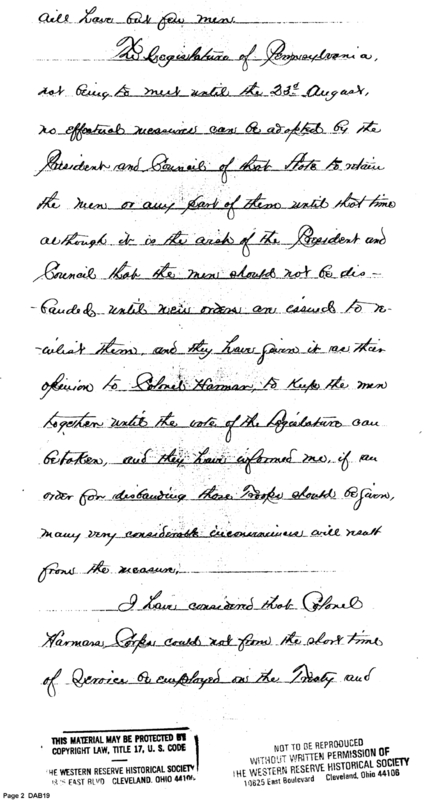 will have but few men
The Legislature of Pennsylvania,
not being to meet until the 23d August,
no effectual measures can be adopted by the
President and Council of that State to retain
the men or any part of them until that time
although it is the wish of the President and
Council that the men should not be dis-
-banded until new orders are issued to re-
-enlist them, and they have given it as their
opinion to Colonel Harmar, to keep the men
together until the vote of the Legislature can
be taken, and they have informed me, if an
order for disbanding those Troops should be given,
many very considerable inconveniences will result
from the measure,
I have considered that Colonel
Harmars Corps could not from the short time
of service be employed on the Treaty and
THIS MATERIAL MAY BE PROTECTED BY
COPYRIGHT LAW, TITLE 17, U. S. CODE
THE WESTERN RESERVE HISTORICAL SOCIETY
EAST BLVD CLEVELAND, OHIO 44106
NOT TO BE REPRODUCED
WITHOUT WRITTEN PERMISSION OF
THE WESTERN RESERVE HISTORICAL SOCIETY
10825 East Boulevard Cleveland, Ohio 44106
Page 2 DAB19